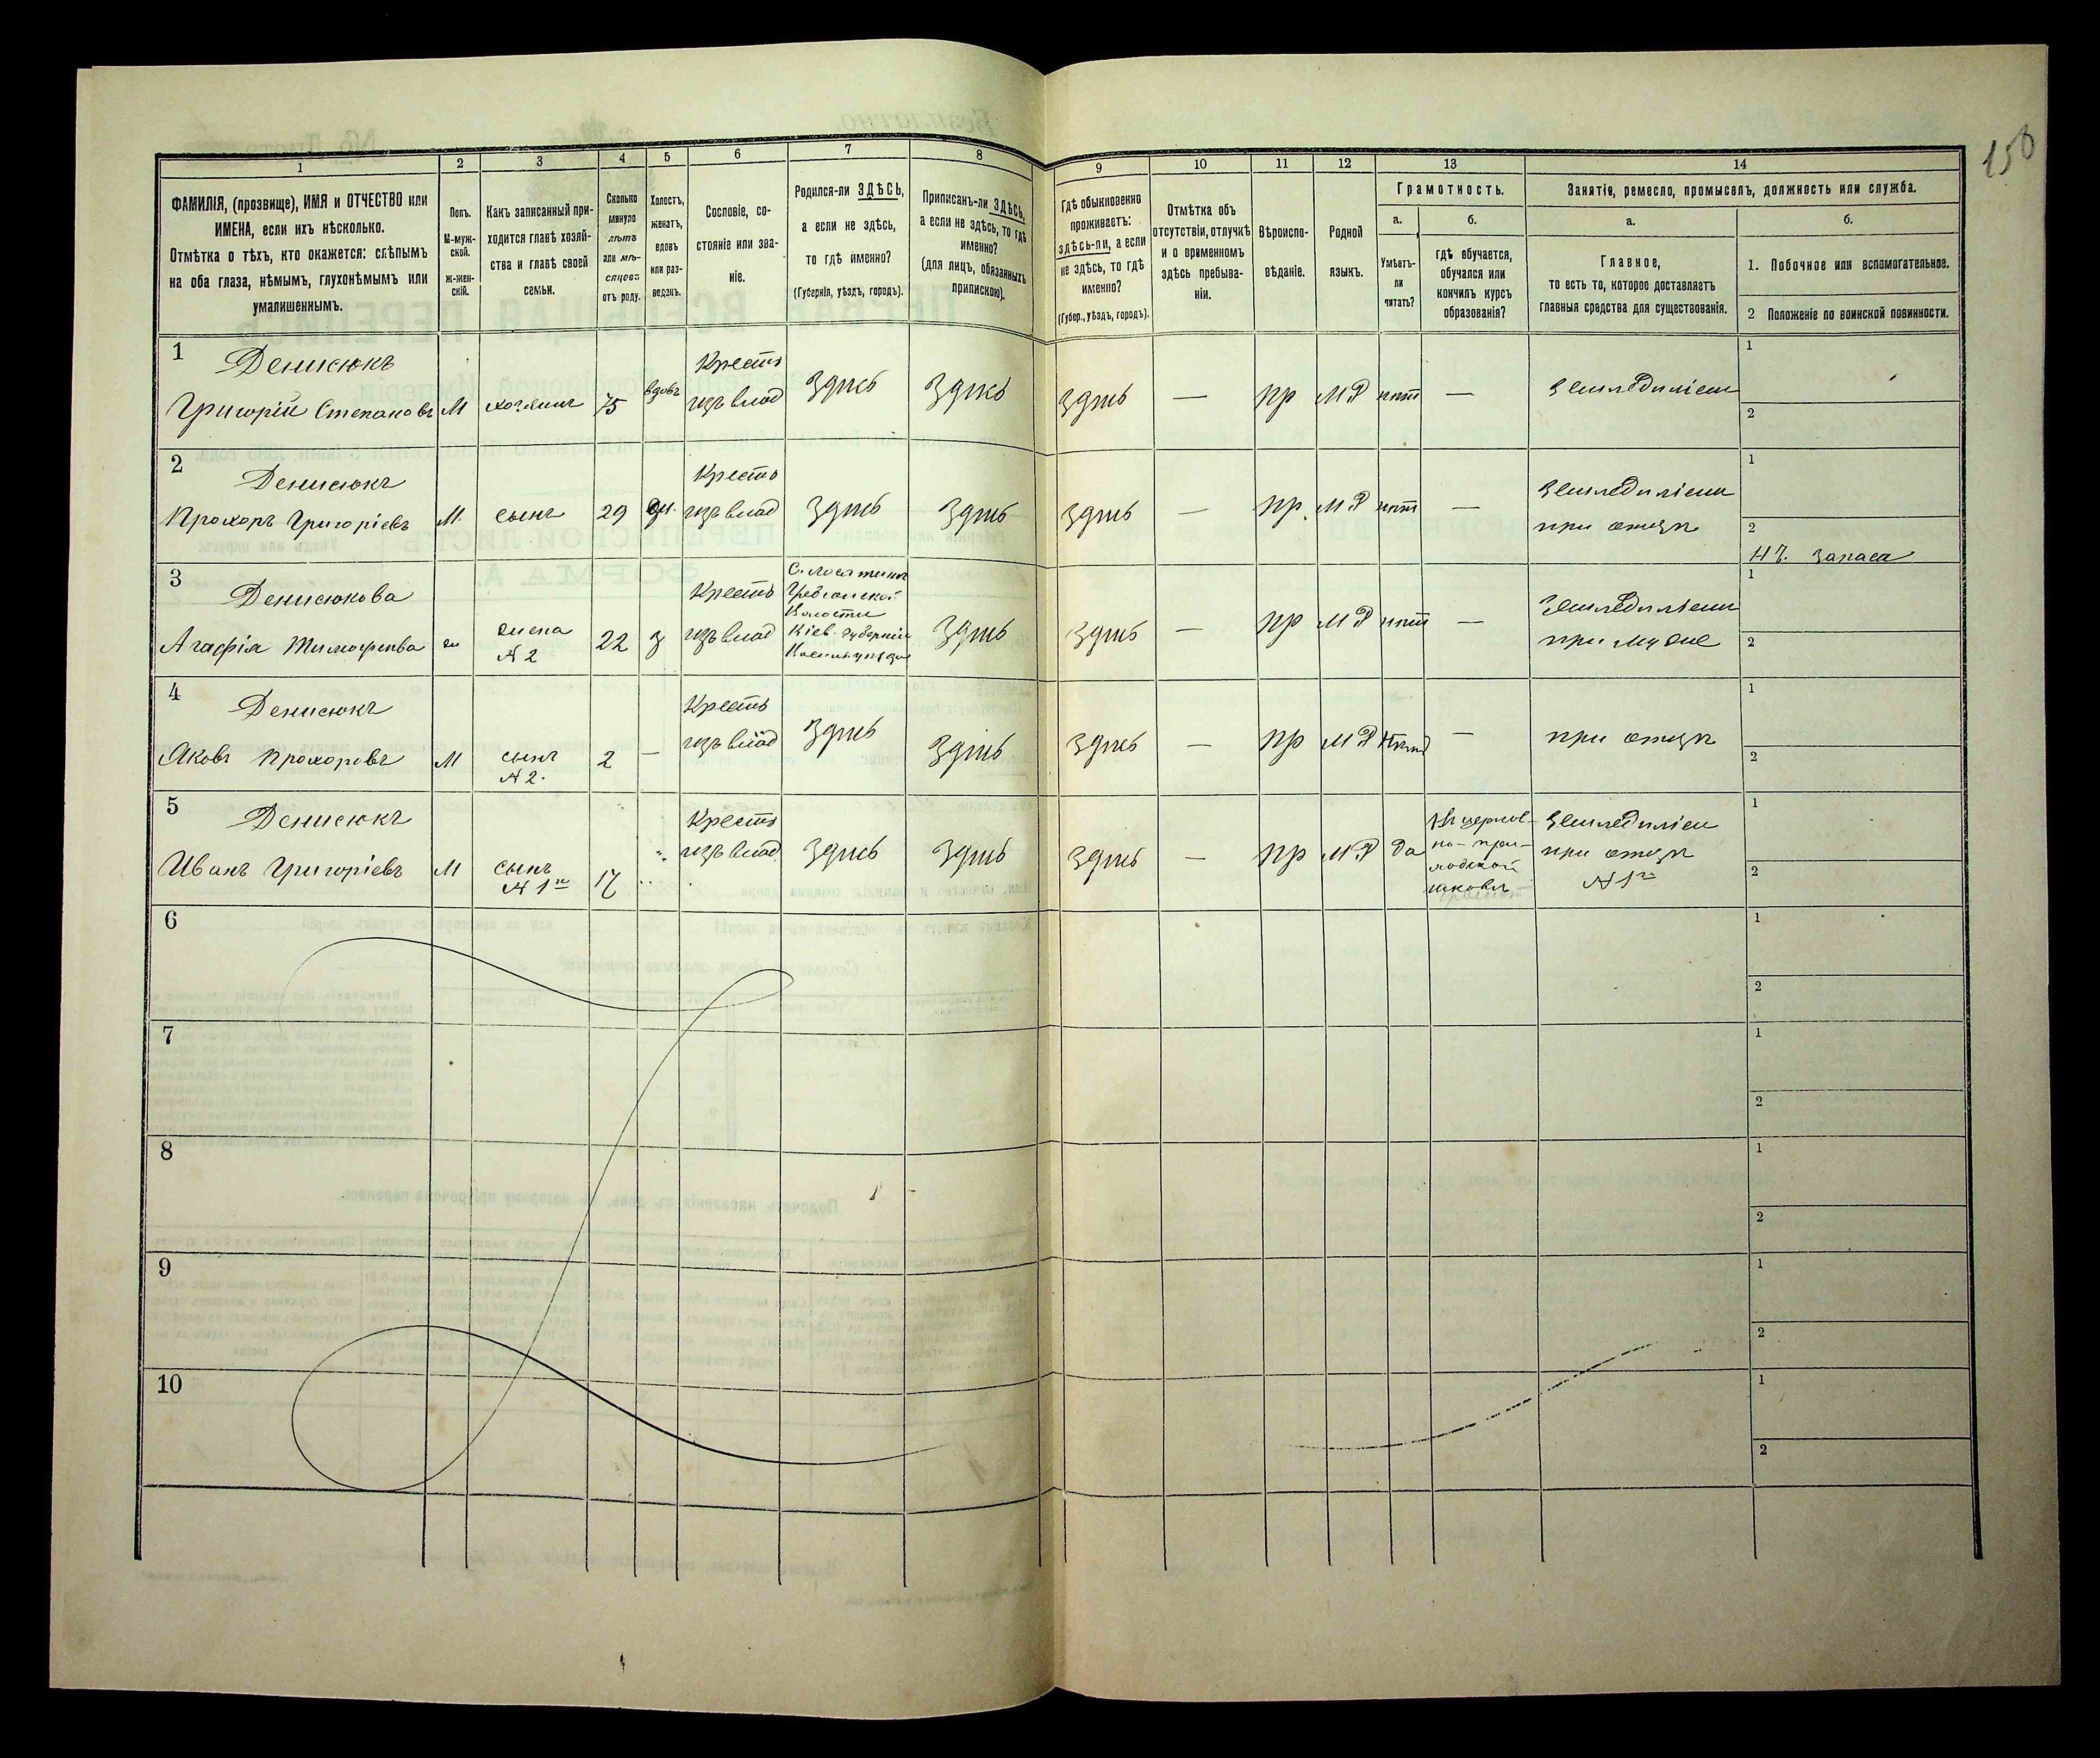 150
1 2 3 4 5 6 7 8 9 10 11 12 13 14
ФАМИЛІЯ, (прозвище), ИМЯ и ОТЧЕСТВО или
ИМЕНА, если ихъ нѣсколько.
Отмѣтка о тѣхъ, кто окажется: слѣпымъ
на оба глаза, нѣмымъ, глухонѣмымъ или
умалишеннымъ.
Полъ.
М-муж-
ской.
ж-жен-
скій.
Какъ записанный при-
ходится главѣ хозяй-
ства и главѣ своей
семьи.
Сколько
минуло
лѣтъ
или мѣ-
сяцевъ
отъ роду.
Холостъ,
женатъ,
вдовъ
или раз-
веденъ.
Сословіе, со-
стояніе или зва-
ніе.
Родился-ли ЗДѢСЬ,
а если не здѣсь,
то гдѣ именно?
(Губернія, уѣздъ, городъ).
Приписанъ-ли ЗДѢСЬ,
а если не здѣсь, то гдѣ
именно?
(для лицъ, обязанныхъ
припискою).
Гдѣ обыкновенно
проживаетъ:
здѣсь-ли, а если
не здѣсь, то гдѣ
именно?
(Губер., уѣздъ, городъ).
Отмѣтка объ
отсутствіи, отлучкѣ
и о временномъ
здѣсь пребыва-
ніи.
Вѣроиспо-
вѣданіе.
Родной
языкъ.
Грамотность.
а.
Умѣетъ-
ли
читать?
б.
гдѣ обучается,
обучался или
кончилъ курсъ
образованія?
Занятіе, ремесло, промыселъ, должность или служба.
а.
Главное,
то есть то, которое доставляетъ
главныя средства для существованія.
б.
1. Побочное или вспомогательное.
2 Положеніе по воинской повинности.
1
Денисюкъ
Григорій Степановъ
М
хозяинъ
75
вдовъ
Крестъ
изъ влад
Здѣсь
Здѣсь
Здѣсь
—
пр
М Р
нѣт
—
Земледѣліем
1
2
2
Денисюкъ
Прохоръ Григоріевъ
М.
сынъ
29
Крестъ
изъ влад
Здѣсь
Здѣсь
Здѣсь
—
пр.
М Р
нѣт
—
Земледѣліем
при отцѣ
1
2
НЧ. Запаса
3
Денисюкова
Агафія Тимофѣева
ж
жена
№ 2
22
з
Крестъ
изъ влад
Волости
Кіев. губерніи
Здѣсь
Здѣсь
—
пр
М Р
нѣт
—
Земледѣліем
при мужѣ
1
2
4
Денисюкъ
Яковъ Прохоровъ
М
сынъ
№ 2.
2
—
Крестъ
изъ влад
Здѣсь
Здѣсь
Здѣсь
—
пр
М Р
Нѣт
—
при отцѣ
1
2
5
Денисюкъ
Иванъ Григоріевъ
М
сынъ
№ 1го
17
Крестъ
изъ влад
Здѣсь
Здѣсь
Здѣсь
—
пр
М Р
да
Въ церков-
но-при-
ходской
школѣ
Земледѣліем
при отцѣ
№ 1го
1
2
6
1
2
7
1
2
8
1
2
9
1
2
10
1
2